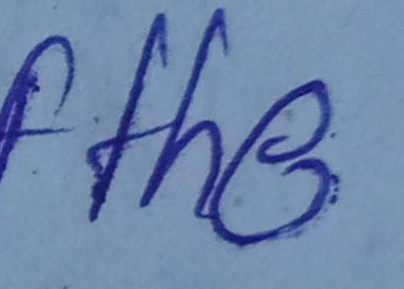 f the